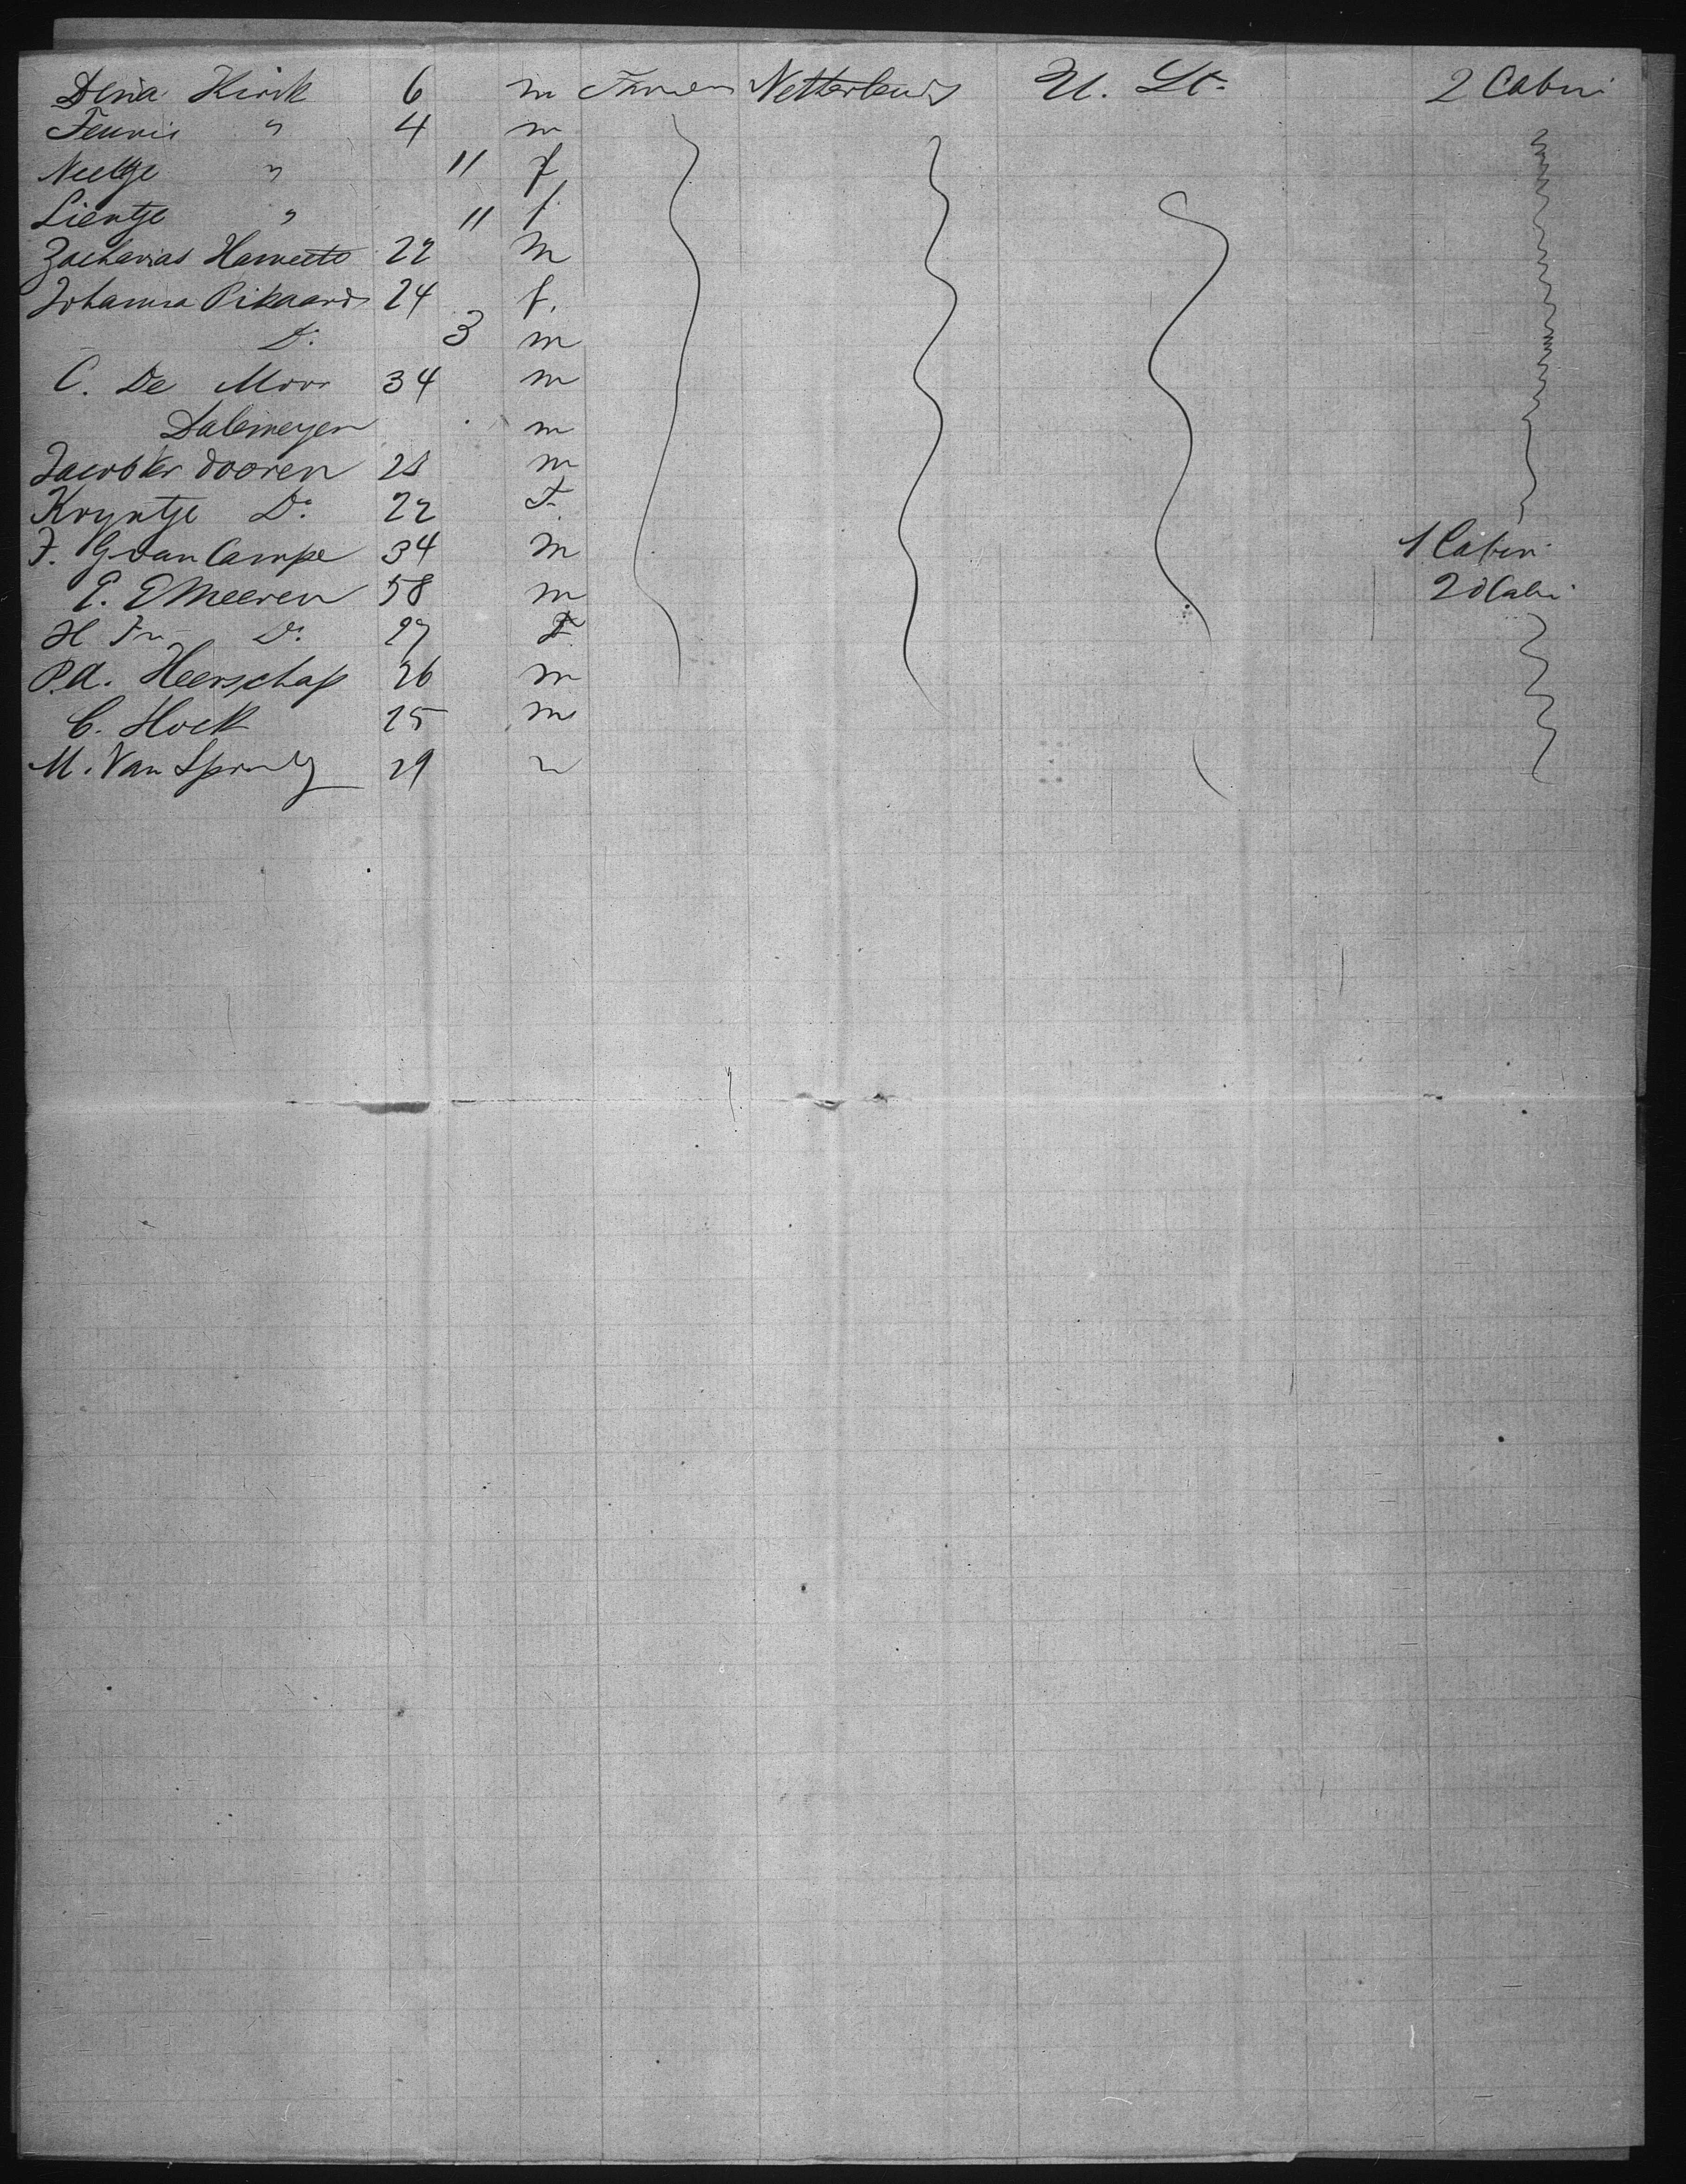 Dina Kirik 6 m Farmer Netherlands U. St. 2 Cabin
Teunis " 4 m
Neeltje " 11 f
Lientje " 11 f
Zacharias Hameete 22 m
Johanna Pikaard 24 f.
Do. 3 m
C. De Moor 34 m
Dalemeyer m
Jacob Ver dooren 28 m
Kryntje Do. 22 F.
J. G van Campe 34 m 1 Cabin
E. E Meeren 58 m 2d Cabi
H Do. 27 F
P.A. Heerschap 26 m
C. Hoek 25 m
M. Van 29 m